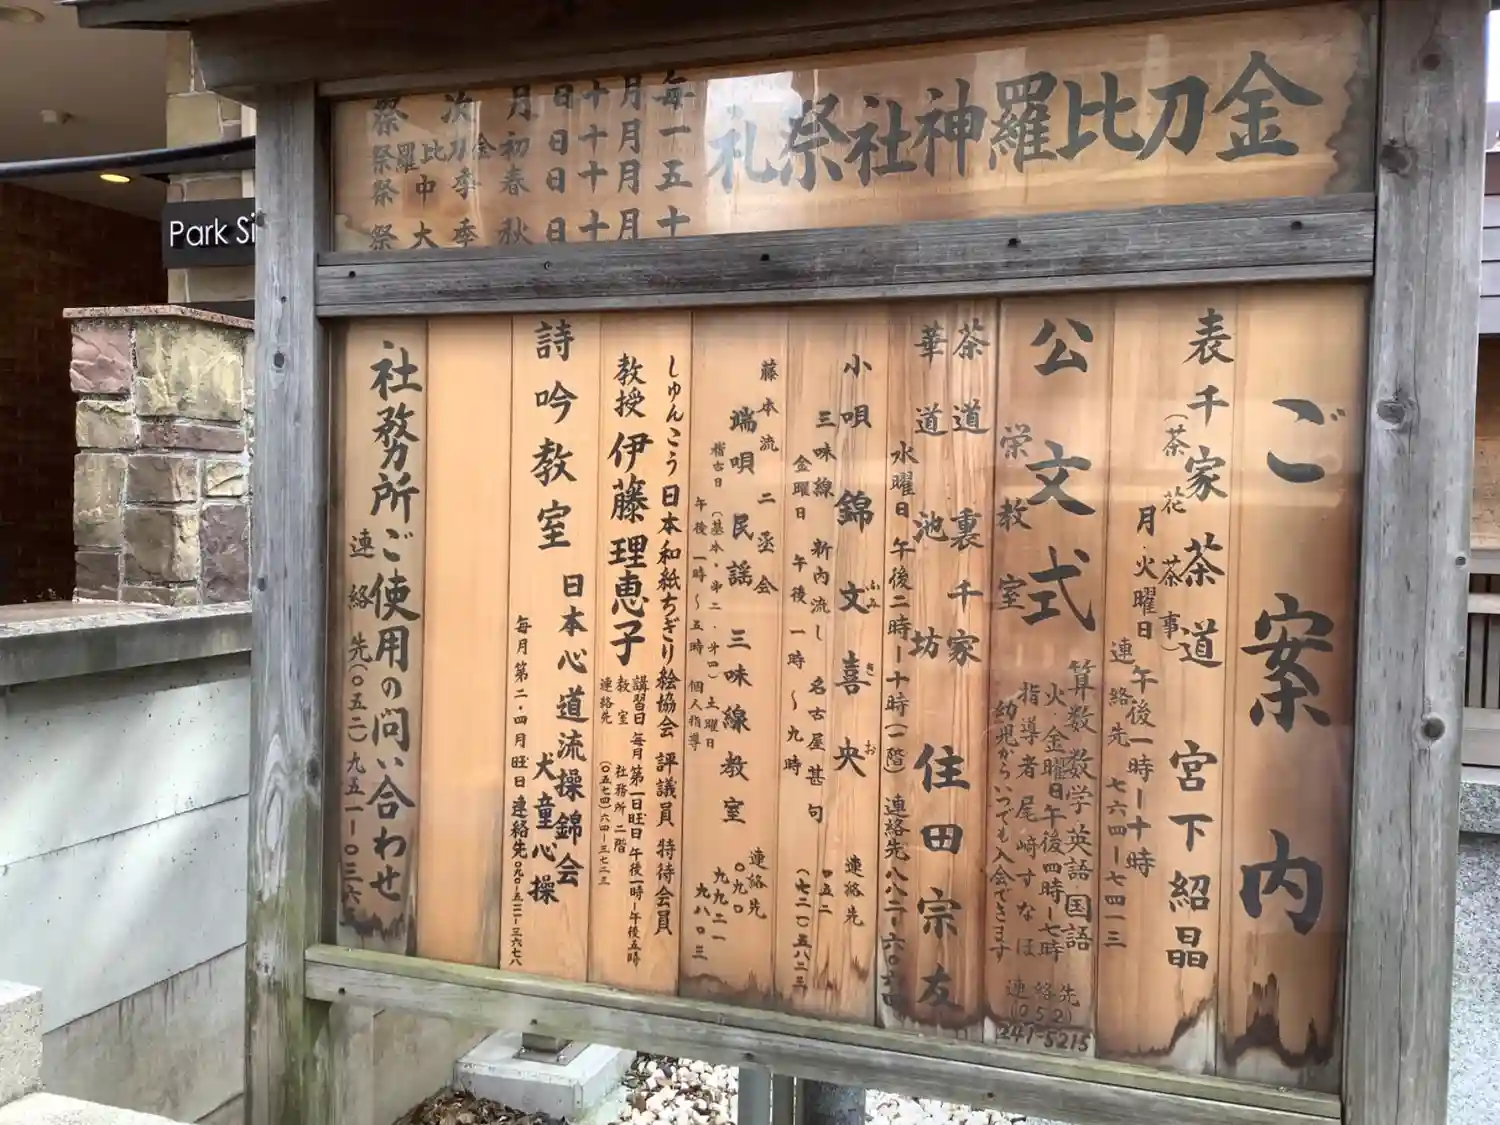 金刀比羅神社祭礼
毎月十日
一月十日
五月十日
十月十日
月次祭
初春金刀比羅祭
春季中祭
秋季大祭
ご案内
表千家茶道 宮下紹晶
(茶花・茶事)
月・火曜日 午後一時ー十時
連絡先 七六四ー七四一三
公文式
栄教室
算数 数学 英語 国語
火・金曜日午後四時ー七時
指導者 尾崎すなほ
幼児からいつでも入会できます
連絡先
(052)
241-5215
茶道 裏千家
華道 池坊 住田宗友
水曜日 午後二時ー十時(二階) 連絡先 八八二ー六〇六四
小唄 錦文喜央
ふみ き お
三味線 新内流し 名古屋甚句
金曜日 午後一時〜九時
連絡先
〇五二
(七二一)五八二三
藤本流 二丞会
端唄 民謡 三味線教室
稽古日 (基本・第二・第四) 土曜日
午後一時〜五時 個人指導
連絡先
〇九〇
九九二一
九八〇三
しゅんこう日本和紙ちぎり絵協会 評議員 特待会員
教授 伊藤理恵子
講習日 毎月第一日旺日 午後一時ー午後五時
教室 社務所二階
連絡先 (〇五七四)六四ー三七二三
詩吟教室 日本心道流操錦会
犬童心操
毎月第二・四月旺日 連絡先 〇九〇ー五三一ー三六七八
社務所ご使用の問い合わせ
連絡先(〇五二)九五一ー〇三六
Park Si